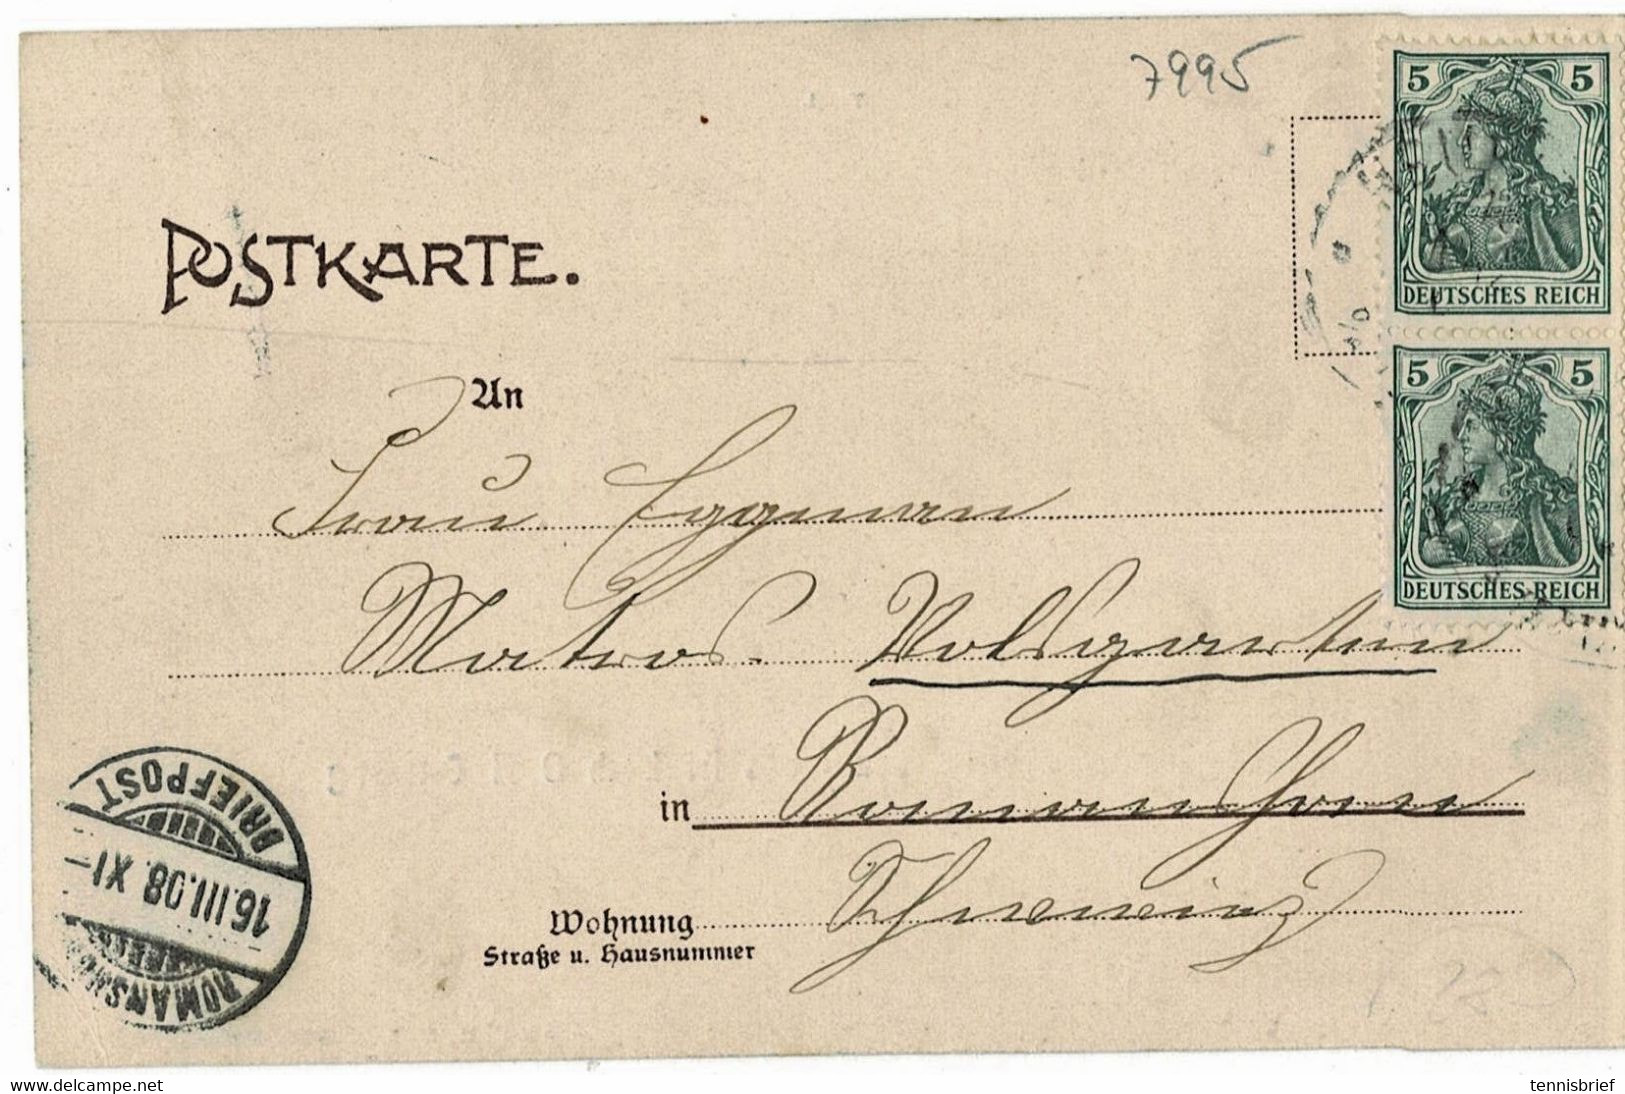 7995
5 5
DEUTSCHES REICH
5 5
DEUTSCHES REICH
POSTKARTE.
An
Frau Eggman
Matros. Volksgarten
in Romanshorn
Schweiz
Wohnung
Straße u. Hausnummer
BRIEFPOST
16.III.08. XI-
ROMANSH
www.delcampe.net
tennisbrief